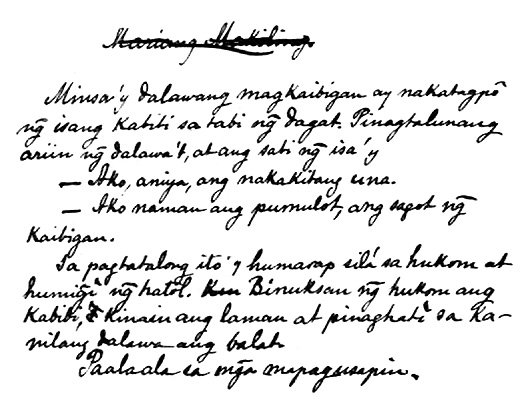 Mariang Makiling.
Minsa'y dalawang magkaibigan ay nakatagpô
ng̃ isang kabibi sa tabi ng̃ dagat. Pinagtalunang
ariin ng̃ dalawa't, at ang sabi ng̃ isa'y
— Ako, aniya, ang nakakitang una.
— Ako naman ang pumulot, ang sagot ng̃
kaibigan.
Sa pagtatalong ito'y humarap silá sa hukom at
humiñgî ng̃ hatol. Binuksan ng̃ hukom ang
kabibi, kinain ang laman at pinaghatî sa ka-
nilang dalawa ang balat.
Paalaala sa mg̃a mapagusapin.